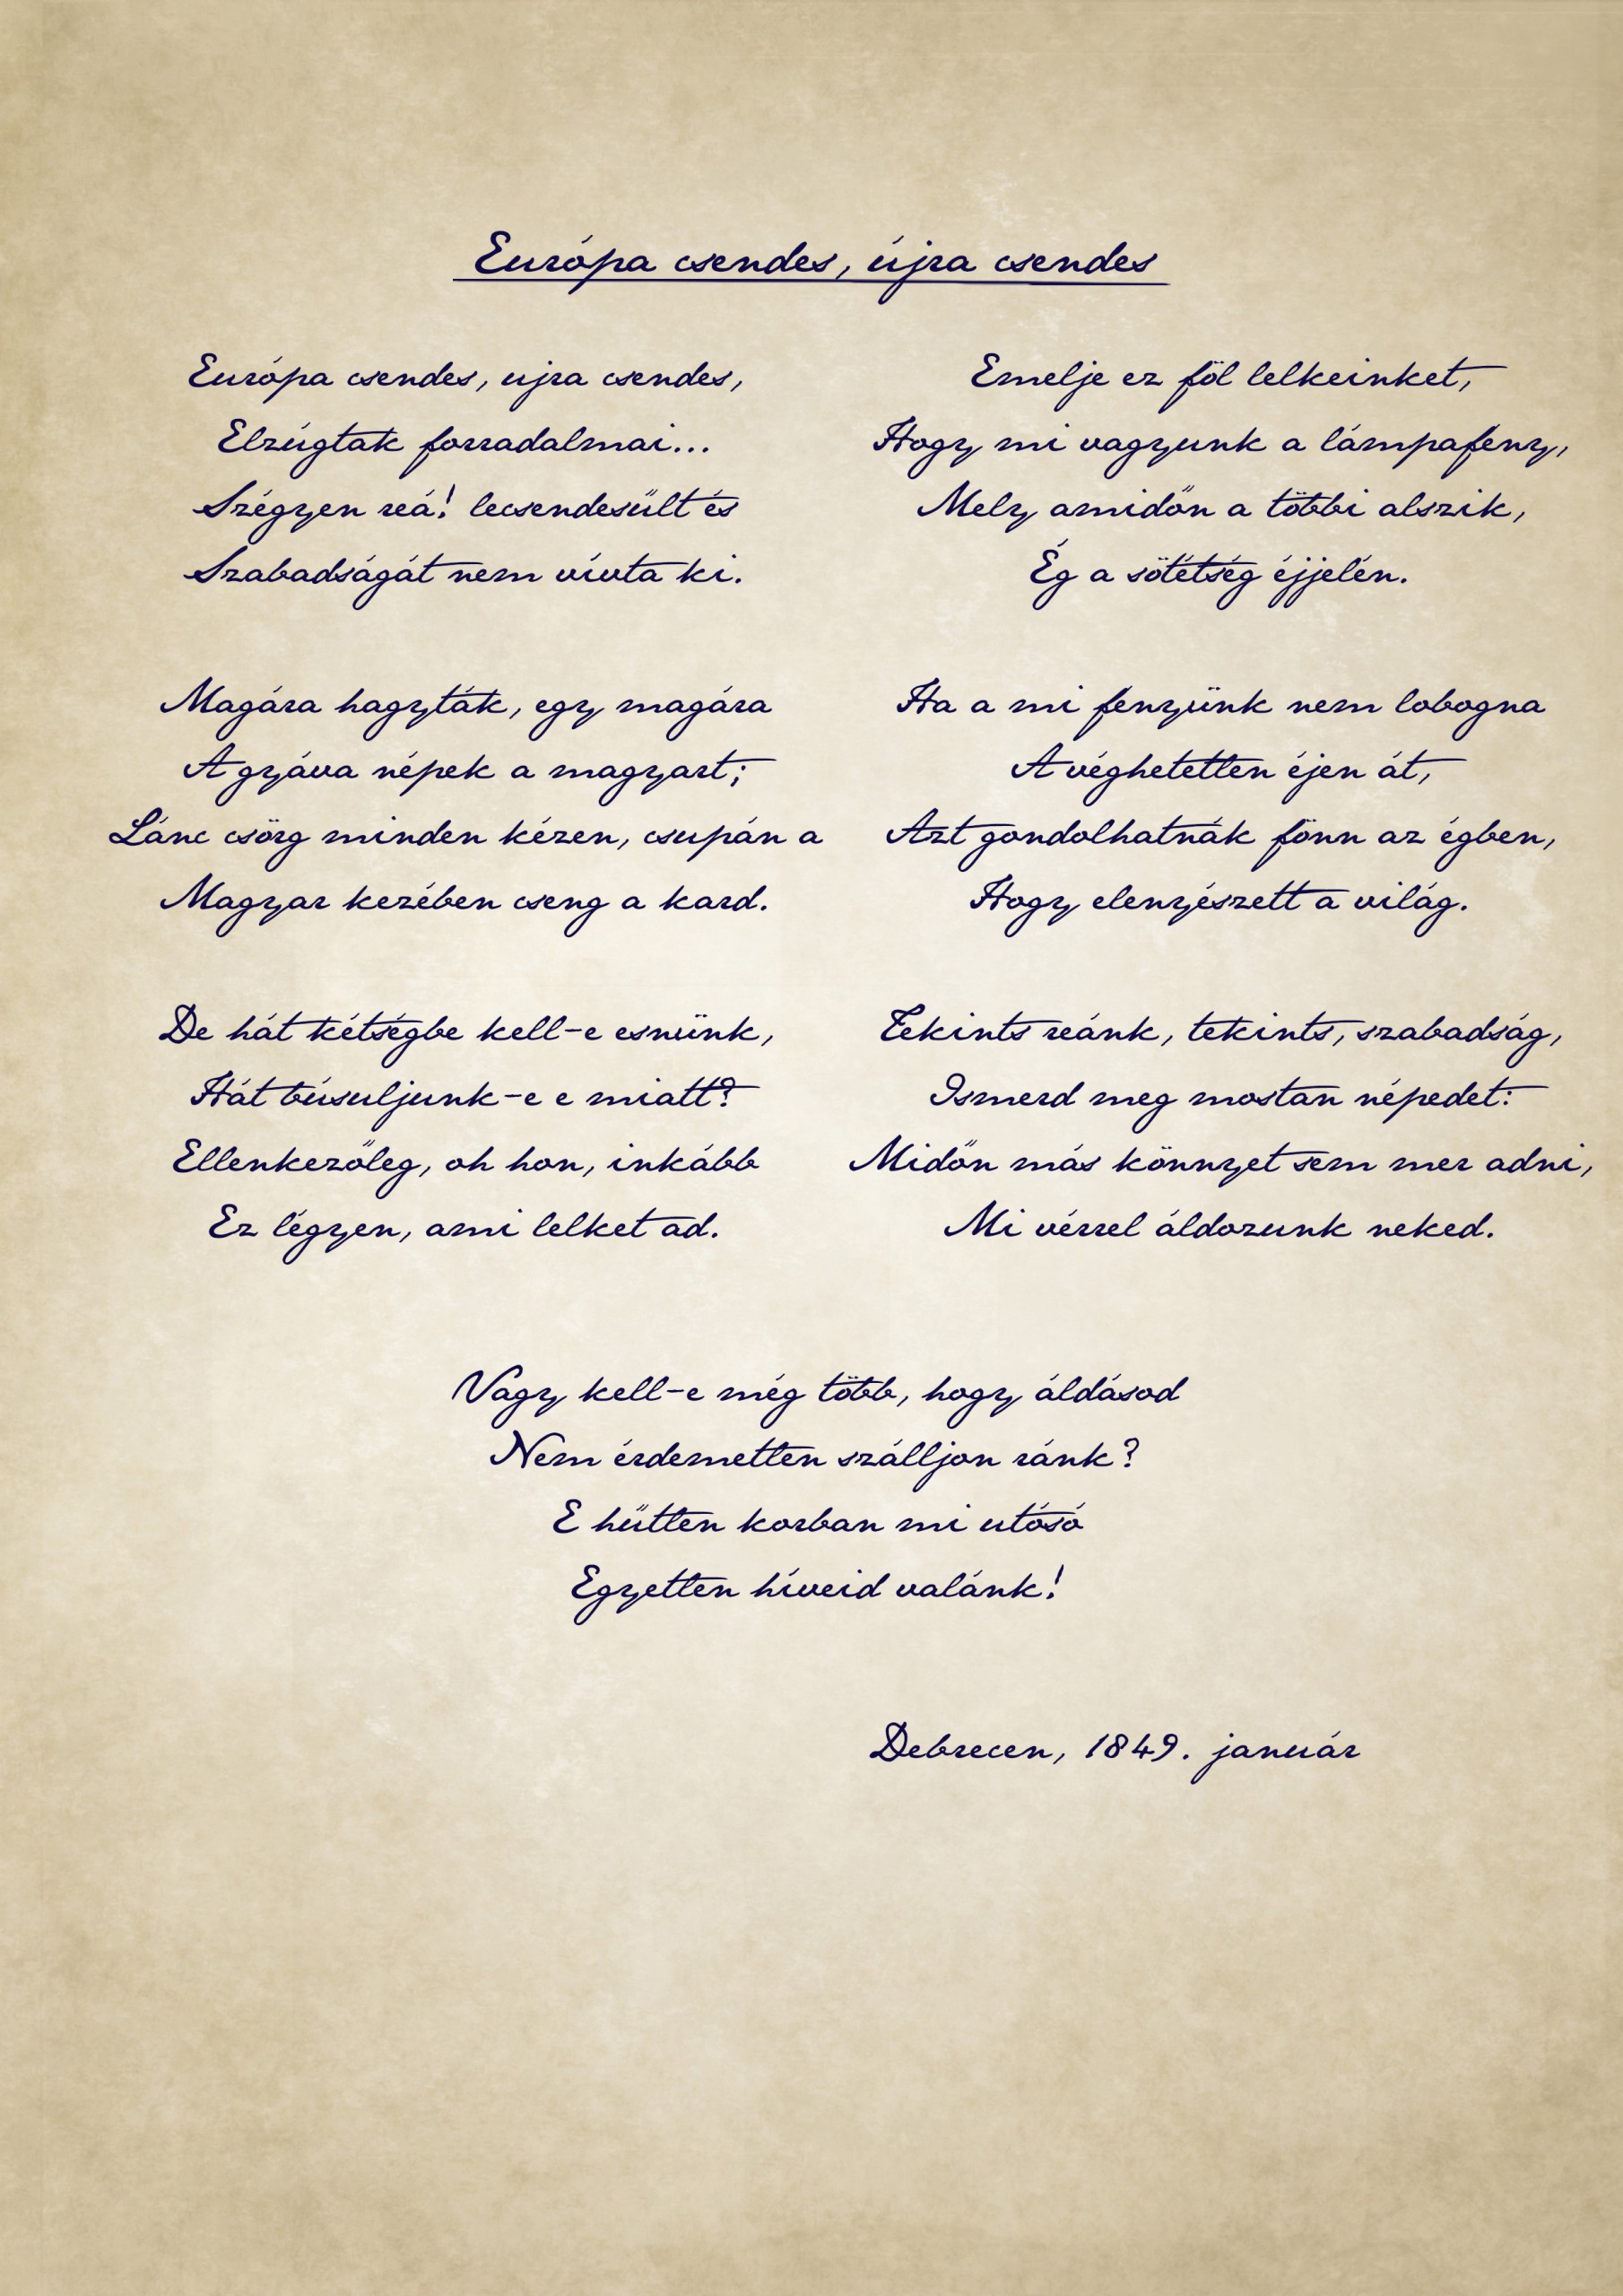 Európa csendes, újra csendes
Európa csendes, ujra csendes,
Elzúgtak forradalmai...
Szégyen reá! lecsendesűlt és
Szabadságát nem vívta ki.
Magára hagyták, egy magára
A gyáva népek a magyart;
Lánc csörg minden kézen, csupán a
Magyar kezében cseng a kard.
De hát kétségbe kell-e esnünk,
Hát búsuljunk-e e miatt?
Ellenkezőleg, oh hon, inkább
Ez légyen, ami lelket ad.
Emelje ez föl lelkeinket,
Hogy mi vagyunk a lámpafeny,
Mely amidőn a többi alszik,
Ég a sötétség éjjelén.
Ha a mi fenyünk nem lobogna
A véghetetlen éjen át,
Azt gondolhatnák fönn az égben,
Hogy elenyészett a világ.
Tekints reánk, tekints, szabadság,
Ismerd meg mostan népedet:
Midőn más könnyet sem mer adni,
Mi vérrel áldozunk neked.
Vagy kell-e még több, hogy áldásod
Nem érdemetlen szálljon ránk?
E hűtlen korban mi utósó
Egyetlen híveid valánk!
Debrecen, 1849. január